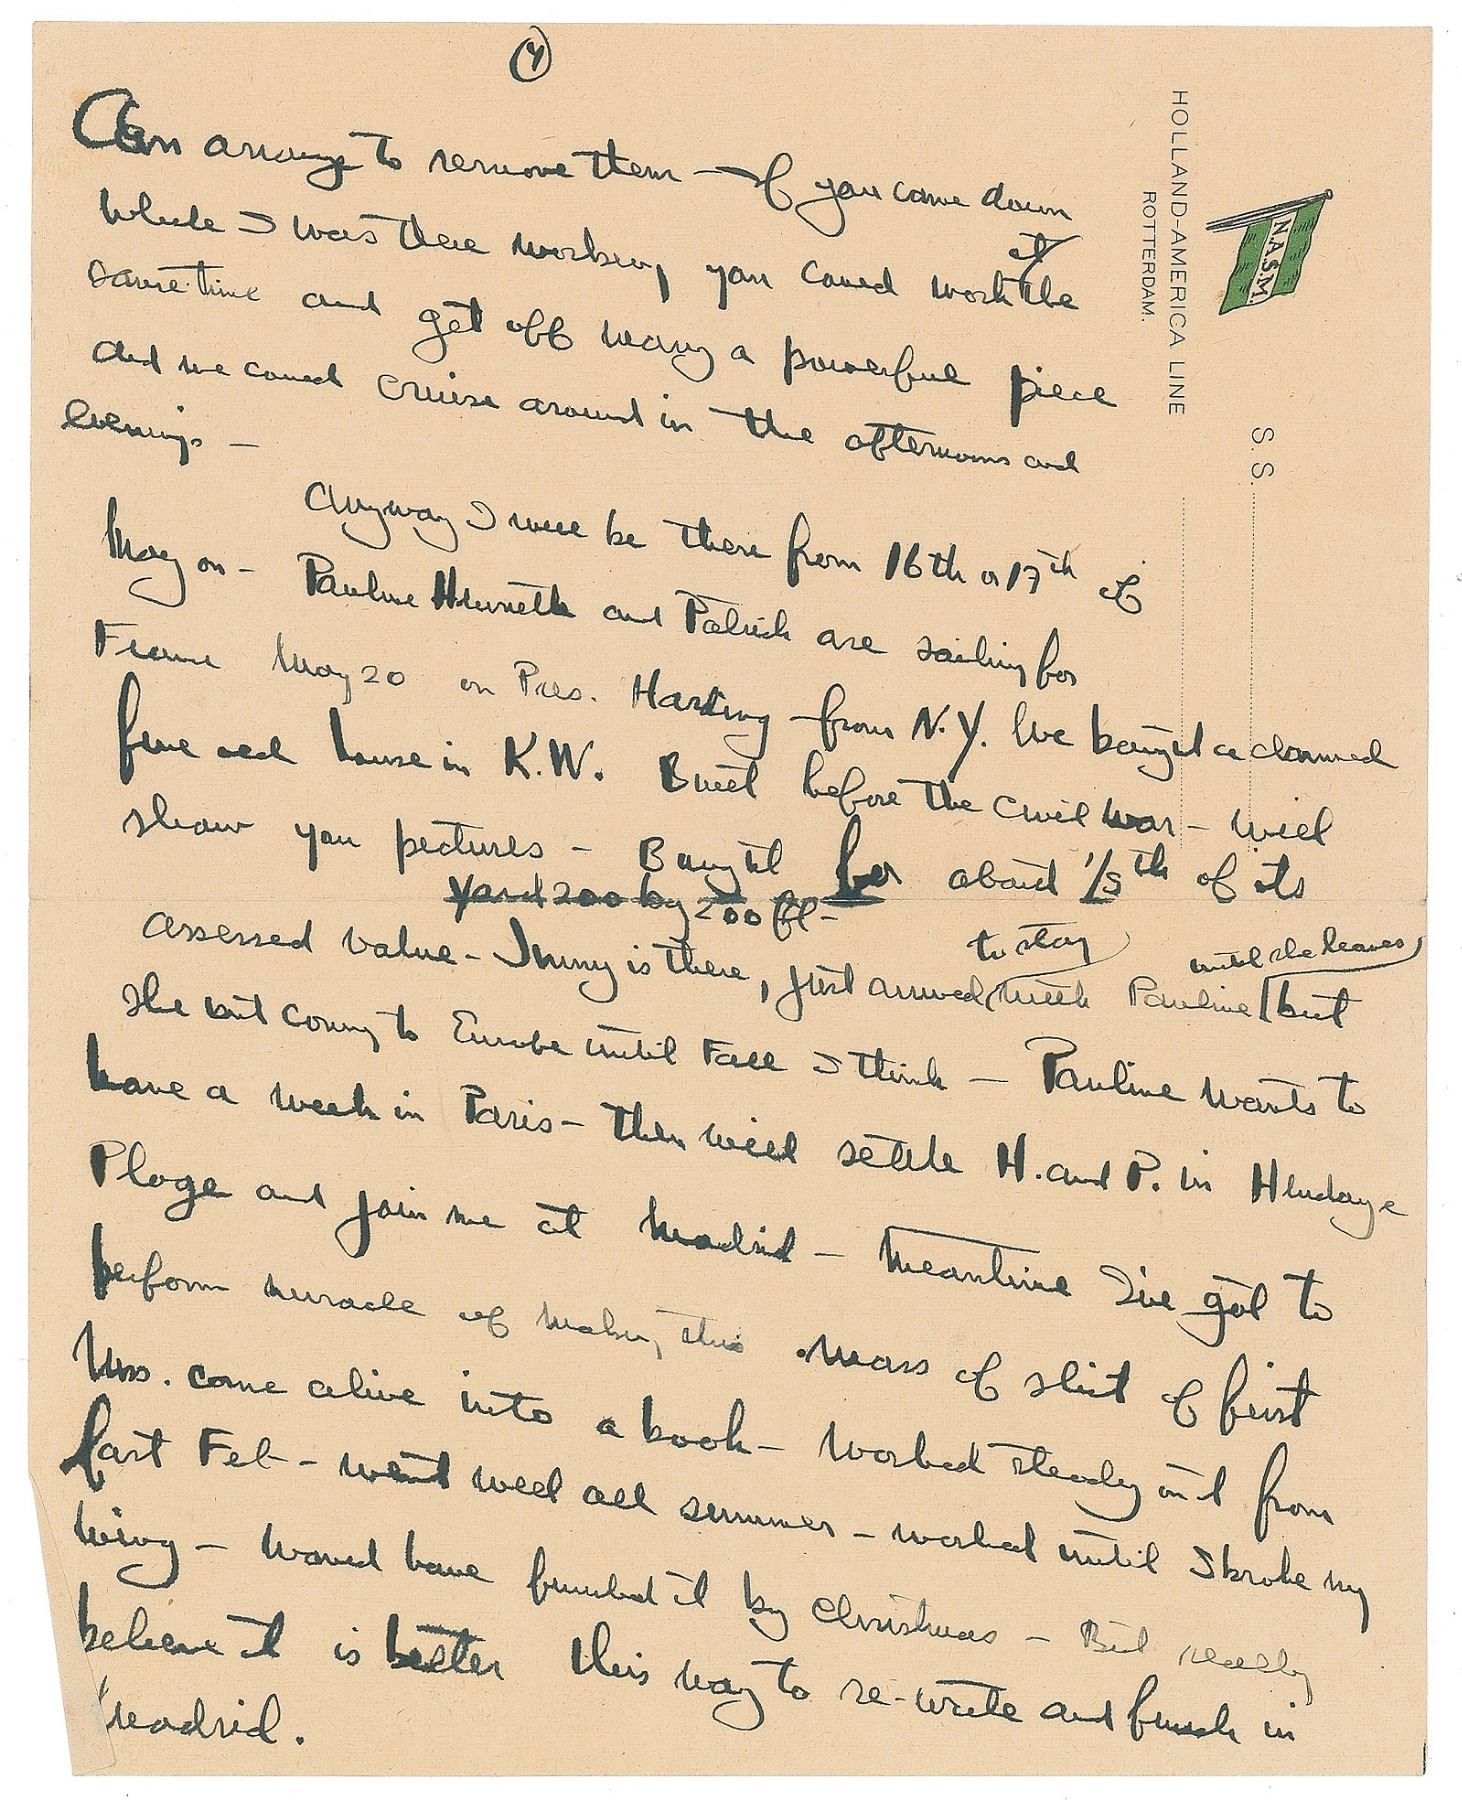 (4)
HOLLAND-AMERICA LINE
ROTTERDAM.
N.A.S.M.
S.S.
Can arrange to remove them — If you came down
while I was there working you could work at the
same time and get off many a powerful piece
and we could cruise around in the afternoons and
evenings —
Anyway I will be there from 16th or 17th of
May on — Pauline and Patrick are sailing for
France May 20 on Pres. Harding — from N.Y. We bought a damned
fine old house in K.W. Built before the civil war — will
show you pictures — Bought for about 1/5th of its
Yard 200 by 200 ft —
assessed value — Jinny is there, just arrived to stay with Pauline until she leaves but
she not coming to Europe until Fall I think — Pauline wants to
have a week in Paris — then will settle H. and P. in Hendaye
Plage and join me at Madrid — Meantime I've got to
perform miracle of making this mass of shit of first
Mss. come alive into a book — Worked steady on it from
last Feb — went well all summer — worked until I broke my
wing — Would have finished it by Christmas — But really
believe it is better this way to re-write and finish in
Madrid.